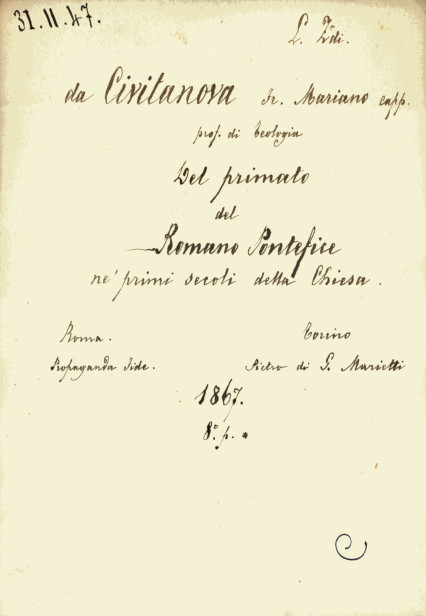 31.11.47.
L. Zdi.
da Civitanova Fr. Mariano capp.
prof. di Teologia
Del primato
del
Romano Pontefice
ne' primi secoli della Chiesa.
Roma. Torino
Propaganda Fide. Pietro di G. Marietti
1867.
8.° p.